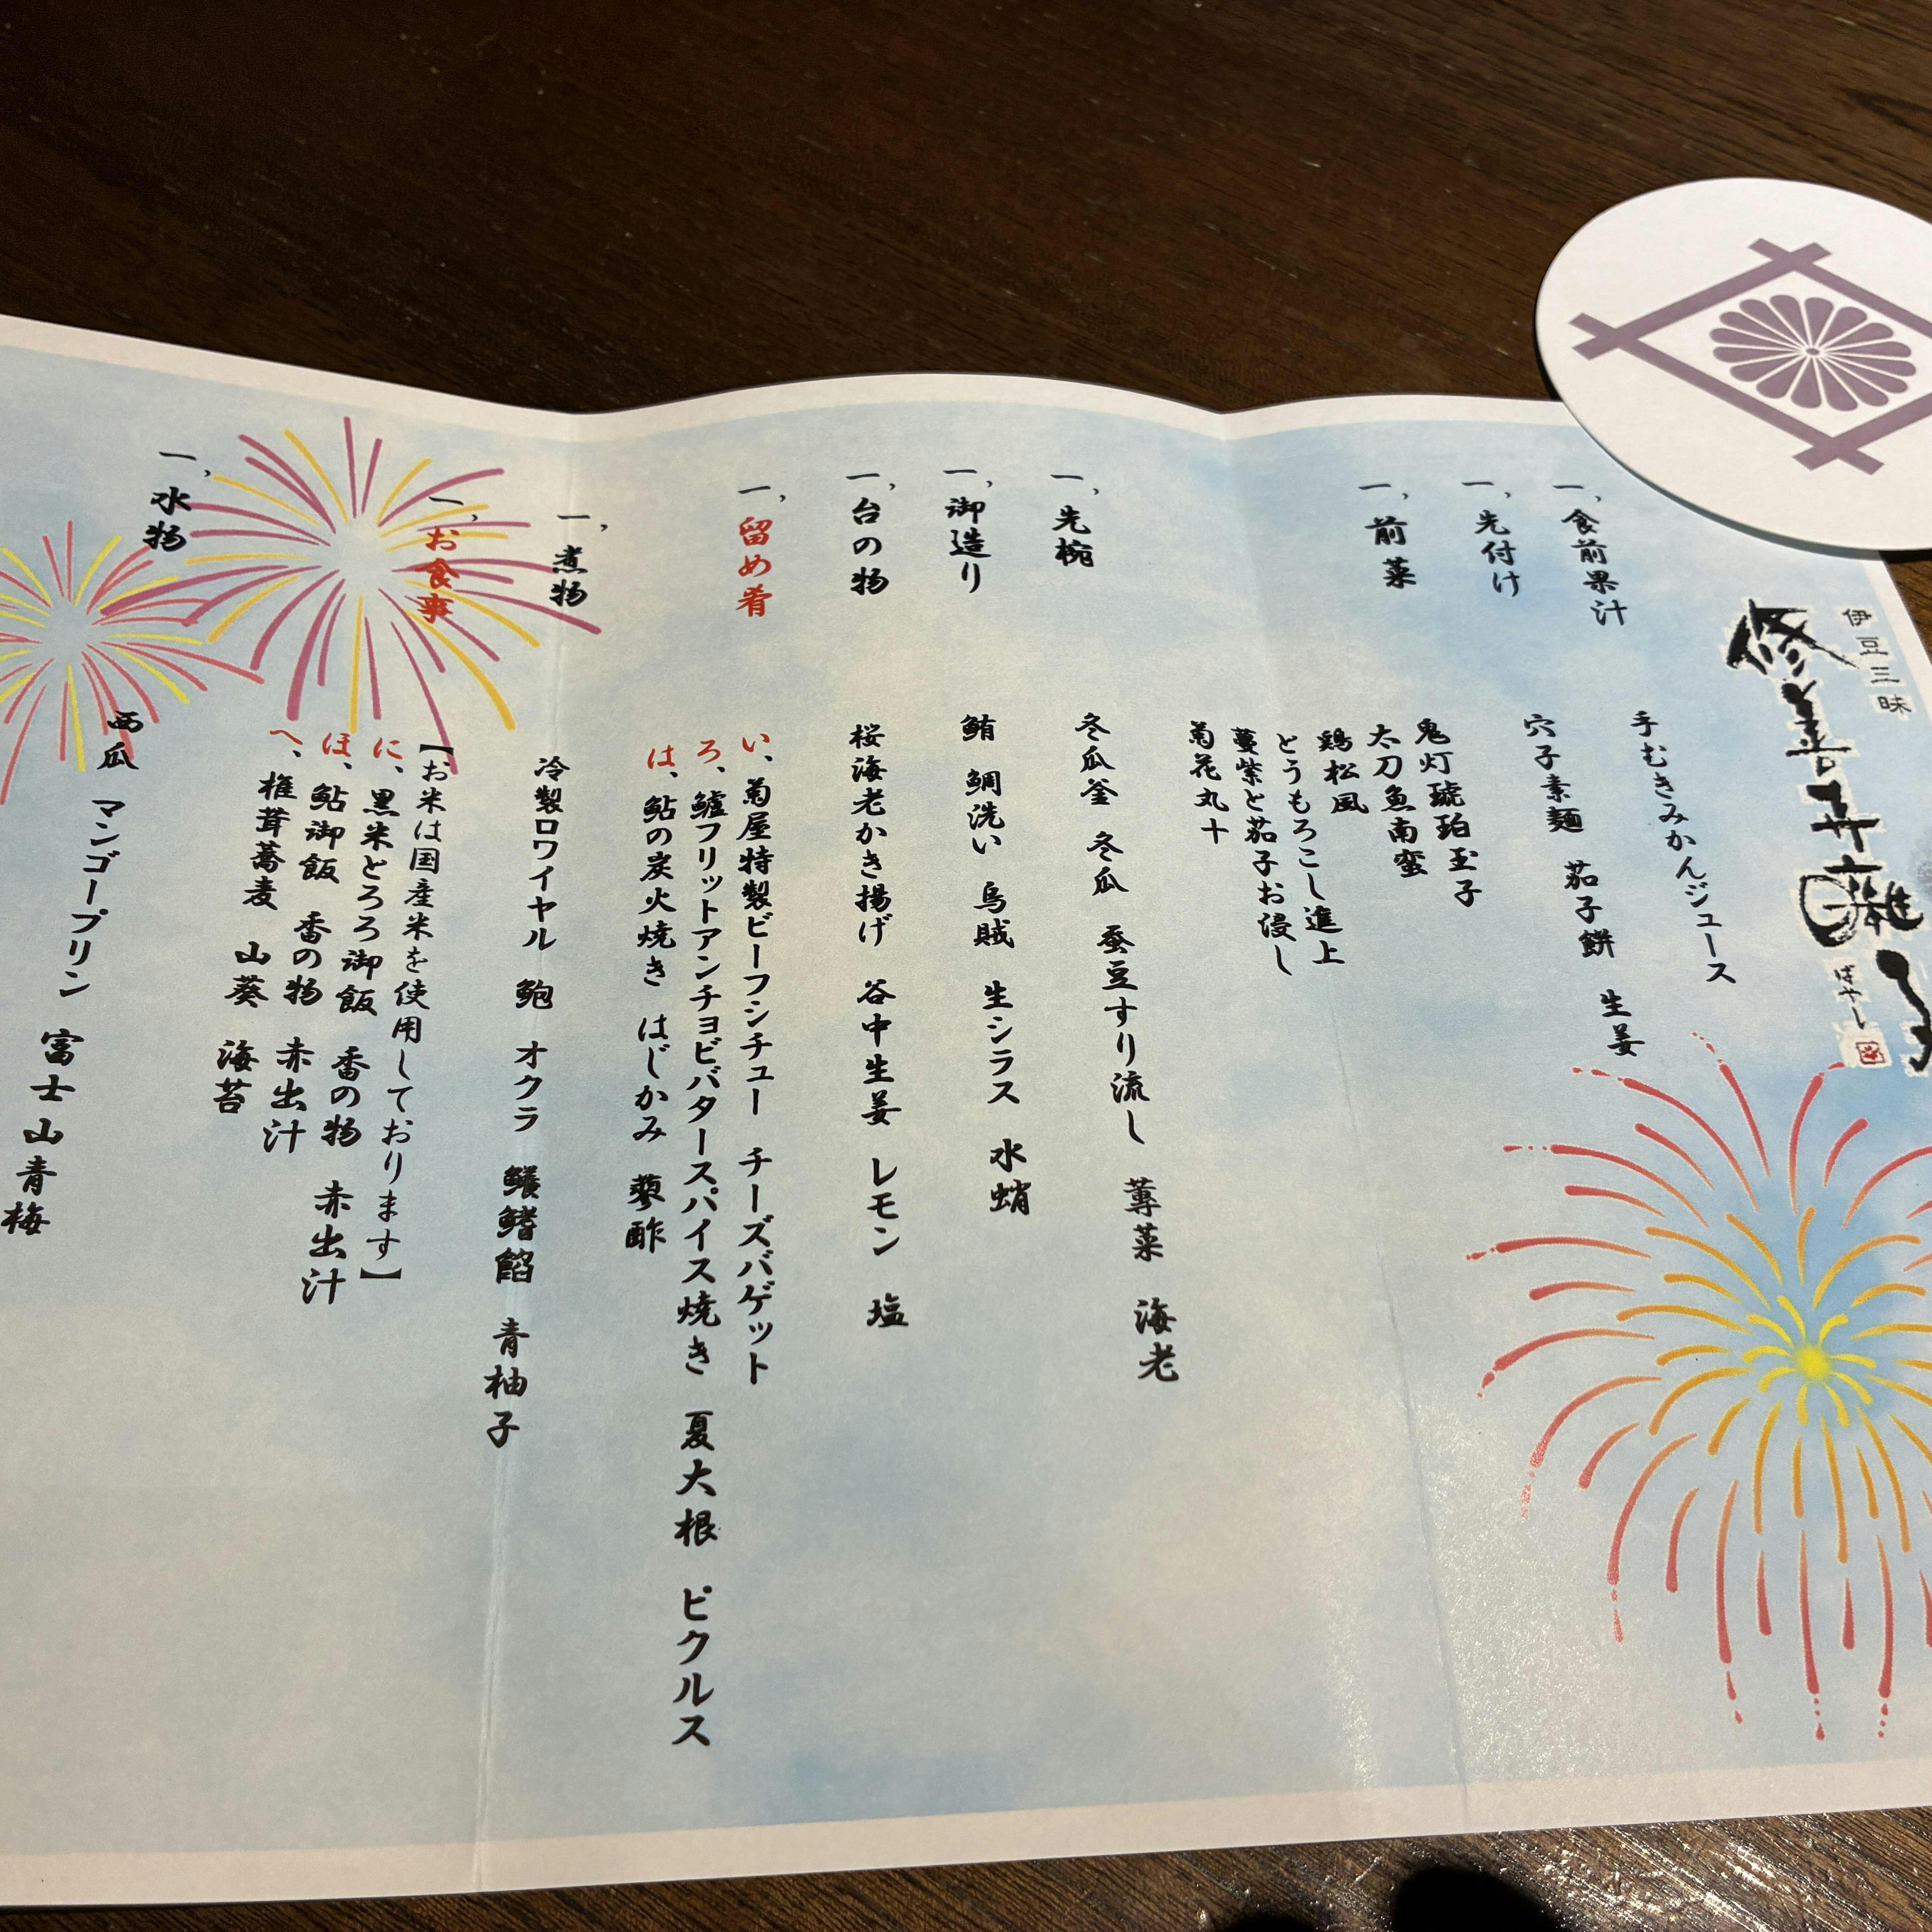 伊豆三昧
修善寺
ばやし
一、食前果汁
手むきみかんジュース
一、先付け
穴子素麺 茄子餅 生姜
一、前菜
鬼灯琥珀玉子
太刀魚南蛮
鶏松風
とうもろこし進上
蔓紫と茄子お浸し
菊花丸十
一、先椀
冬瓜釜 冬瓜 蚕豆すり流し 蓴菜 海老
一、御造り
鮪 鯛洗い 烏賊 生シラス 水蛸
一、台の物
桜海老かき揚げ 谷中生姜 レモン 塩
一、留め肴
い、菊屋特製ビーフシチュー チーズバゲット
ろ、鱸フリットアンチョビバタースパイス焼き 夏大根 ピクルス
は、鮎の炭火焼き はじかみ 蓼酢
一、煮物
冷製ロワイヤル 鮑 オクラ 鱶鰭餡 青柚子
一、お食事
【お米は国産米を使用しております】
に、黒米とろろ御飯 香の物 赤出汁
ほ、鮎御飯 香の物 赤出汁
へ、椎茸蕎麦 山葵 海苔
一、水物
西瓜 マンゴープリン 富士山青梅